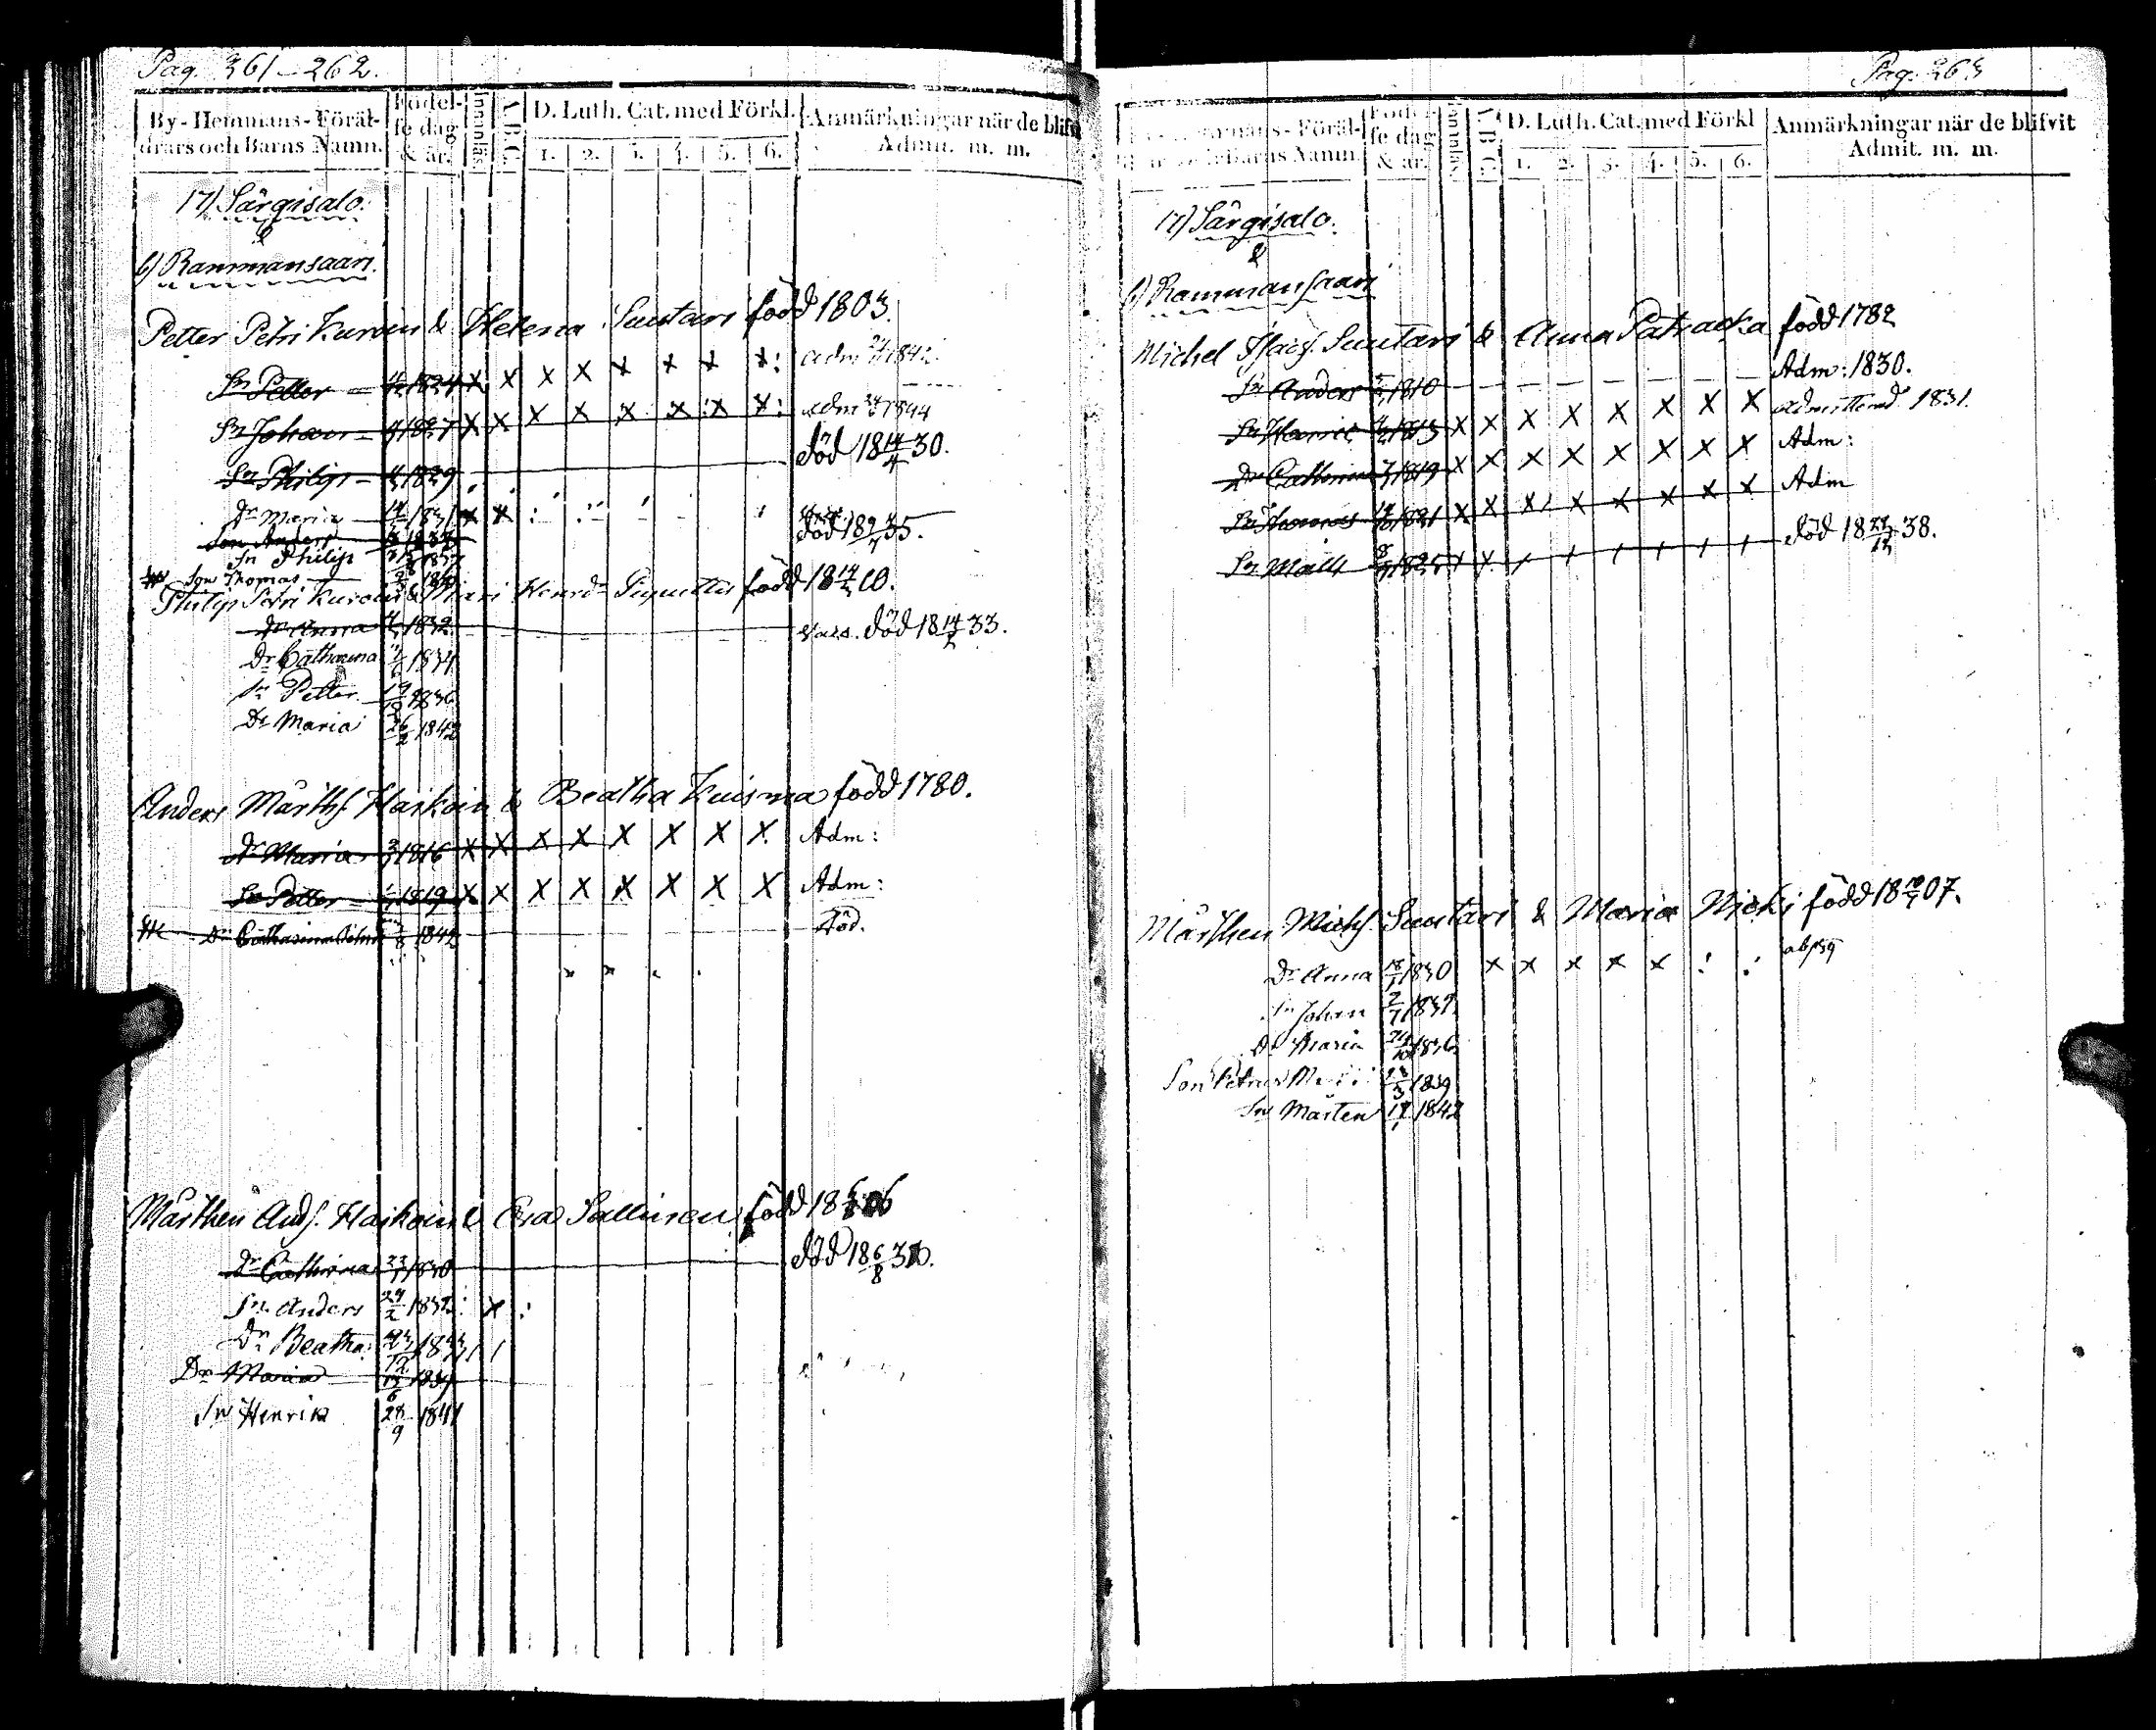 Pag. 361-262.
By-Hemmans-Föräl-
drars och Barns Namn.
Födel-
se dag
& år.
Innanläs.
A.B.C.
D. Luth. Cat. med Förkl.
1. 2. 3. 4. 5. 6.
Anmärkningar när de blifvit
Admit. m. m.
17) Särgisalo.
&
6) Rammansaari.
Petter Petri Kuroin & Helena Suutari född 1803.
Sn Petter 1824 x x x x x x x x: adm 1842.
Sn Johan 1827 x x x x x x x x: adm 1844
Sn Philip 1829 död 18 14/4 30.
Dr Maria 1831 x x
Son Anders död 18 35.
Sn Philip 1837
Son Thomas 1840
Philip Petri Kuroin & Mari Henrdr född 18 10.
Dr Anna 1832 död 18 14/2 33.
Dr Catharina 1834
Sn Petter 19 1836
Dr Maria 26/2 1842
Anders Mårthf. Haikoin & Beatha Kuisma född 1780.
Dr Maria 1816 x x x x x x x x Adm:
Sn Petter 1819 x x x x x x x x Adm:
Dr Catharina 1842 död.
Mårthen Andf. Haikoin & Eva Sallinen född 18 06
Dr Cathrina 1830 död 18 6/8 30.
Sn Anders 29/2 1832 x :
Dr Beatha 1833
Dr Maria 1839
Sn Henrik 28/9 1841
Pag. 263
Hemmans-Föräl-
drars och Barns Namn.
Födel-
se dag
& år.
Innanläs.
A.B.C.
D. Luth. Cat. med Förkl
1. 2. 3. 4. 5. 6.
Anmärkningar när de blifvit
Admit. m. m.
17) Särgisalo.
&
6) Rammansaari
Michel Isacs. Suutari & Anna Patracka född 1782
Sn Anders 1810 Adm: 1830.
Sn Henric 1813 x x x x x x x x admitterad 1831.
Dr Cathrina 1819 x x x x x x x x Adm:
Sn Thomas 1821 x x x x x x x x Adm
Sn Matts 1825 död 18 38.
Mårthen Michf. Suutari & Maria Nicki född 18 07.
Dr Anna 18/1 1830 x x x x x : :
Sn Johan 2/7 1832
Dr Maria 24/10 1836
Son Petrus 1839
Sn Mårten 1842